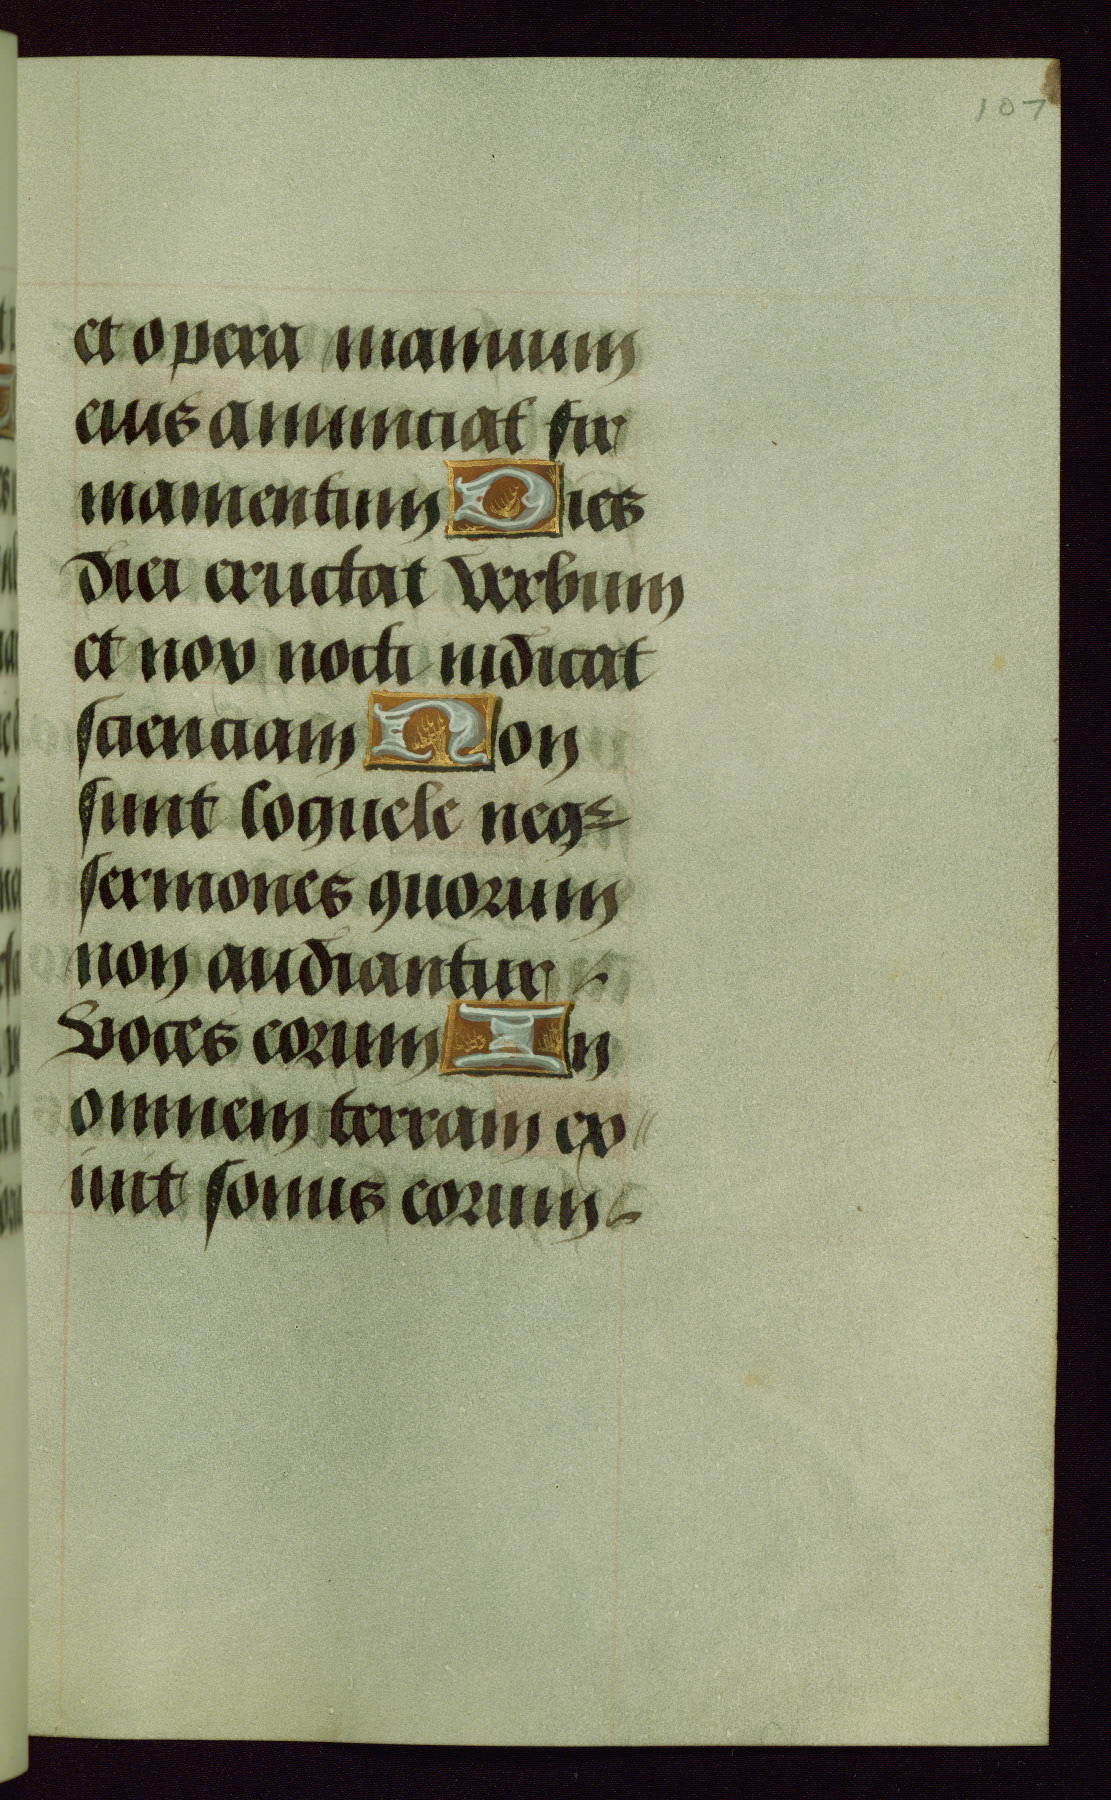 107
et opera manuum
eius annunciat fir
mamentum Dies
diei eructat verbum
et nox nocti indicat
scienciam Non
sunt loquele neqꝫ
sermones quorum
non audiantur
voces eorum In
omnem terram ex
iuit sonus eorum